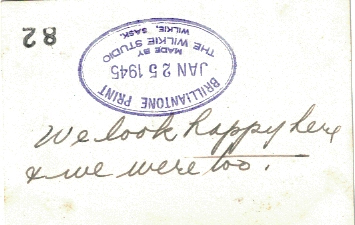 82
BRILLIANTONE PRINT
JAN 25 1945
MADE BY
THE WILKIE STUDIO
WILKIE, SASK.
We look happy here
& we were too.